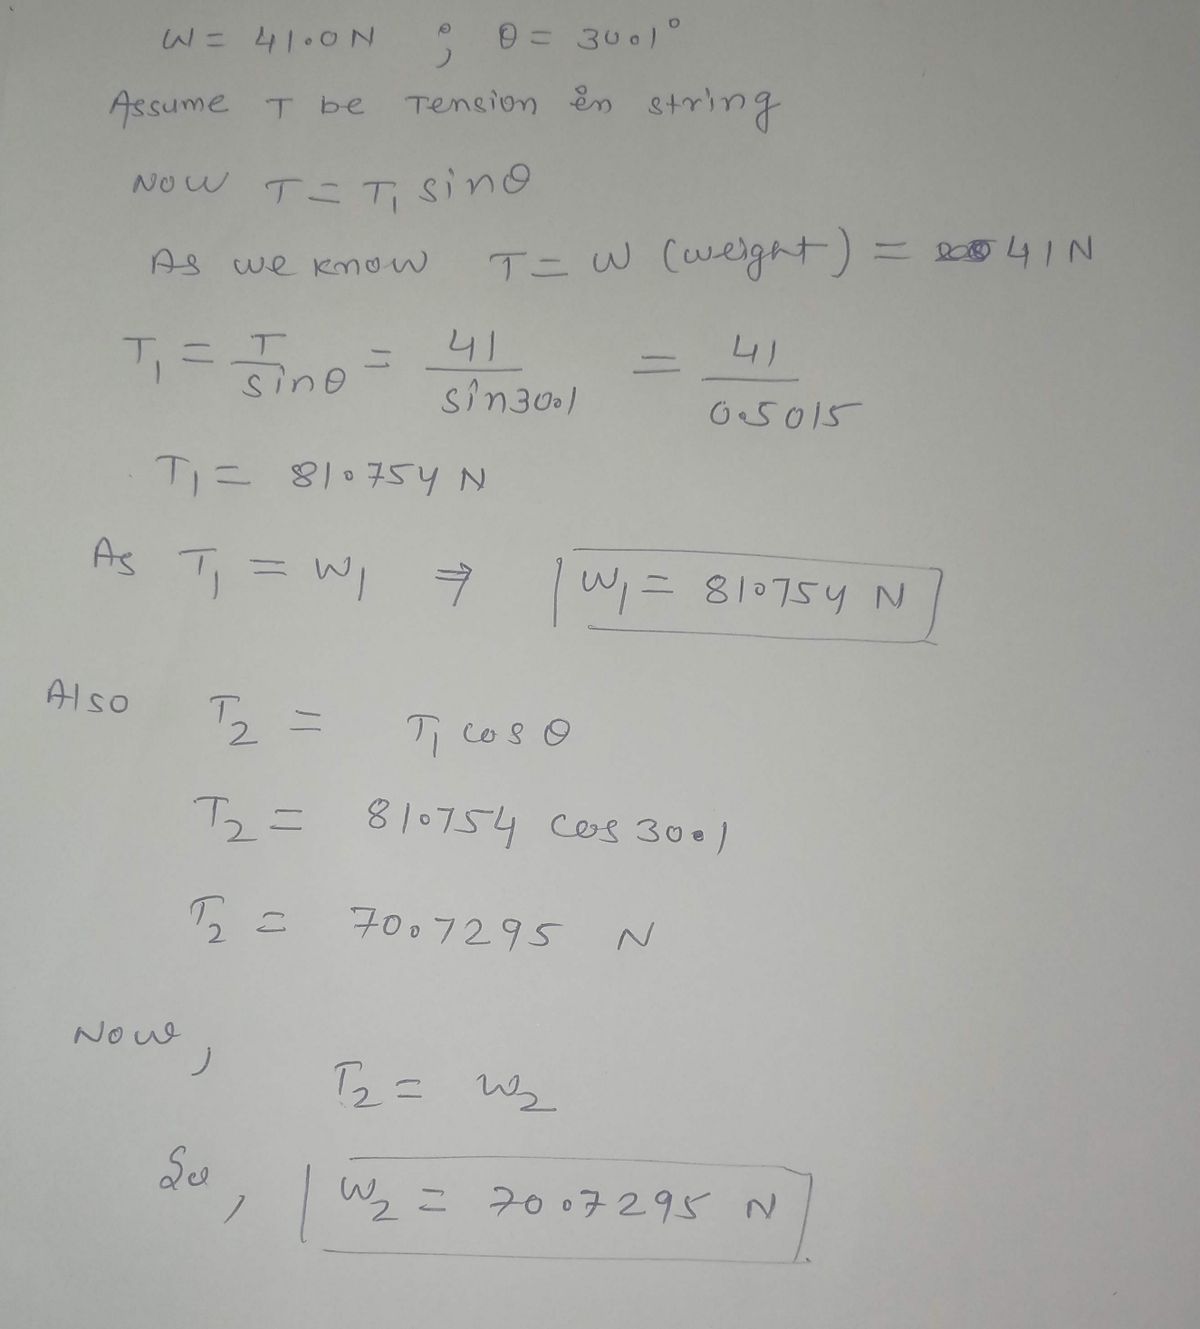 W = 41.0 N ; θ = 30.1°
Assume T be Tension in string
Now T = T₁ sinθ
As we know T = W (weight) = 41 N
T₁ = T/sinθ = 41/sin30.1 = 41/0.5015
T₁ = 81.754 N
As T₁ = W₁ ⇒ W₁ = 81.754 N
Also T₂ = T₁ cosθ
T₂ = 81.754 cos 30.1
T₂ = 70.7295 N
Now,
T₂ = W₂
So, W₂ = 70.7295 N